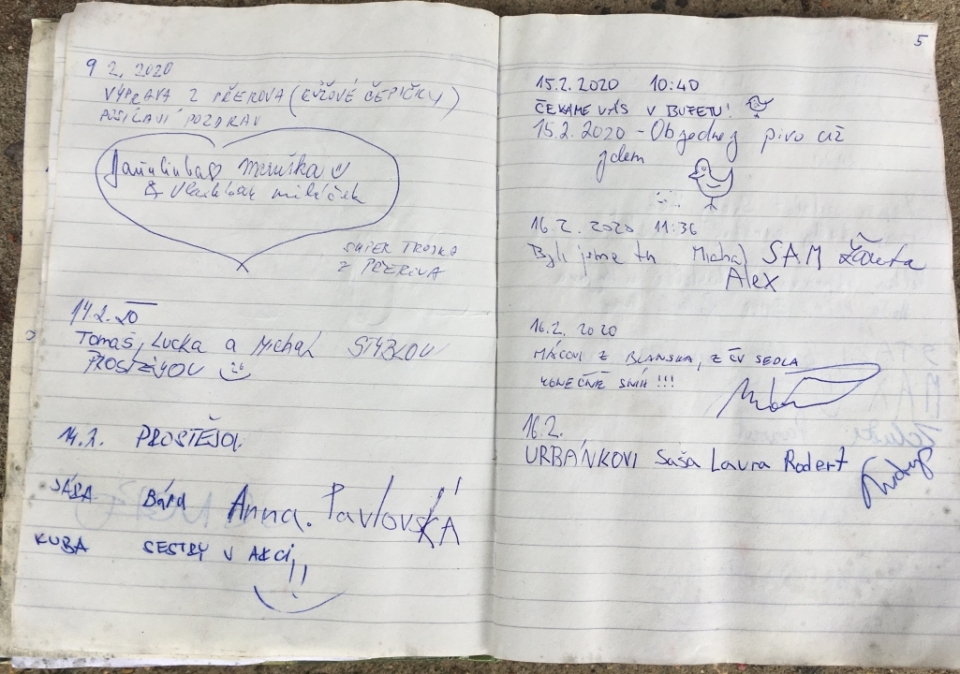 9 2. 2020
VÝPRAVA Z PŘEROVA (RŮŽOVÉ ČEPIČKY)
POSÍLAJÍ POZDRAV
Meruška
& miláček
TROJKA
Z PŘEROVA
14.2. 20
Tomáš, Lucka a Michal
PROSTĚJOV
14.2. PROSTĚJOV
SÁRA Bára Anna. PavlovskÁ
KUBA SESTRY V AKCI!!
5
15.2.2020 10:40
ČEKÁME VÁS V BUFETU!
15.2.2020 - Objednej pivo už
jdem
16.2.2020 11:36
Byli jsme tu Michal SAM Žaneta
Alex
16.2. 2020
Z BLANSKA, Z ČV SEDLA
KONEČNĚ SNÍH !!!
16.2.
URBÁNKOVI Saša Laura Robert